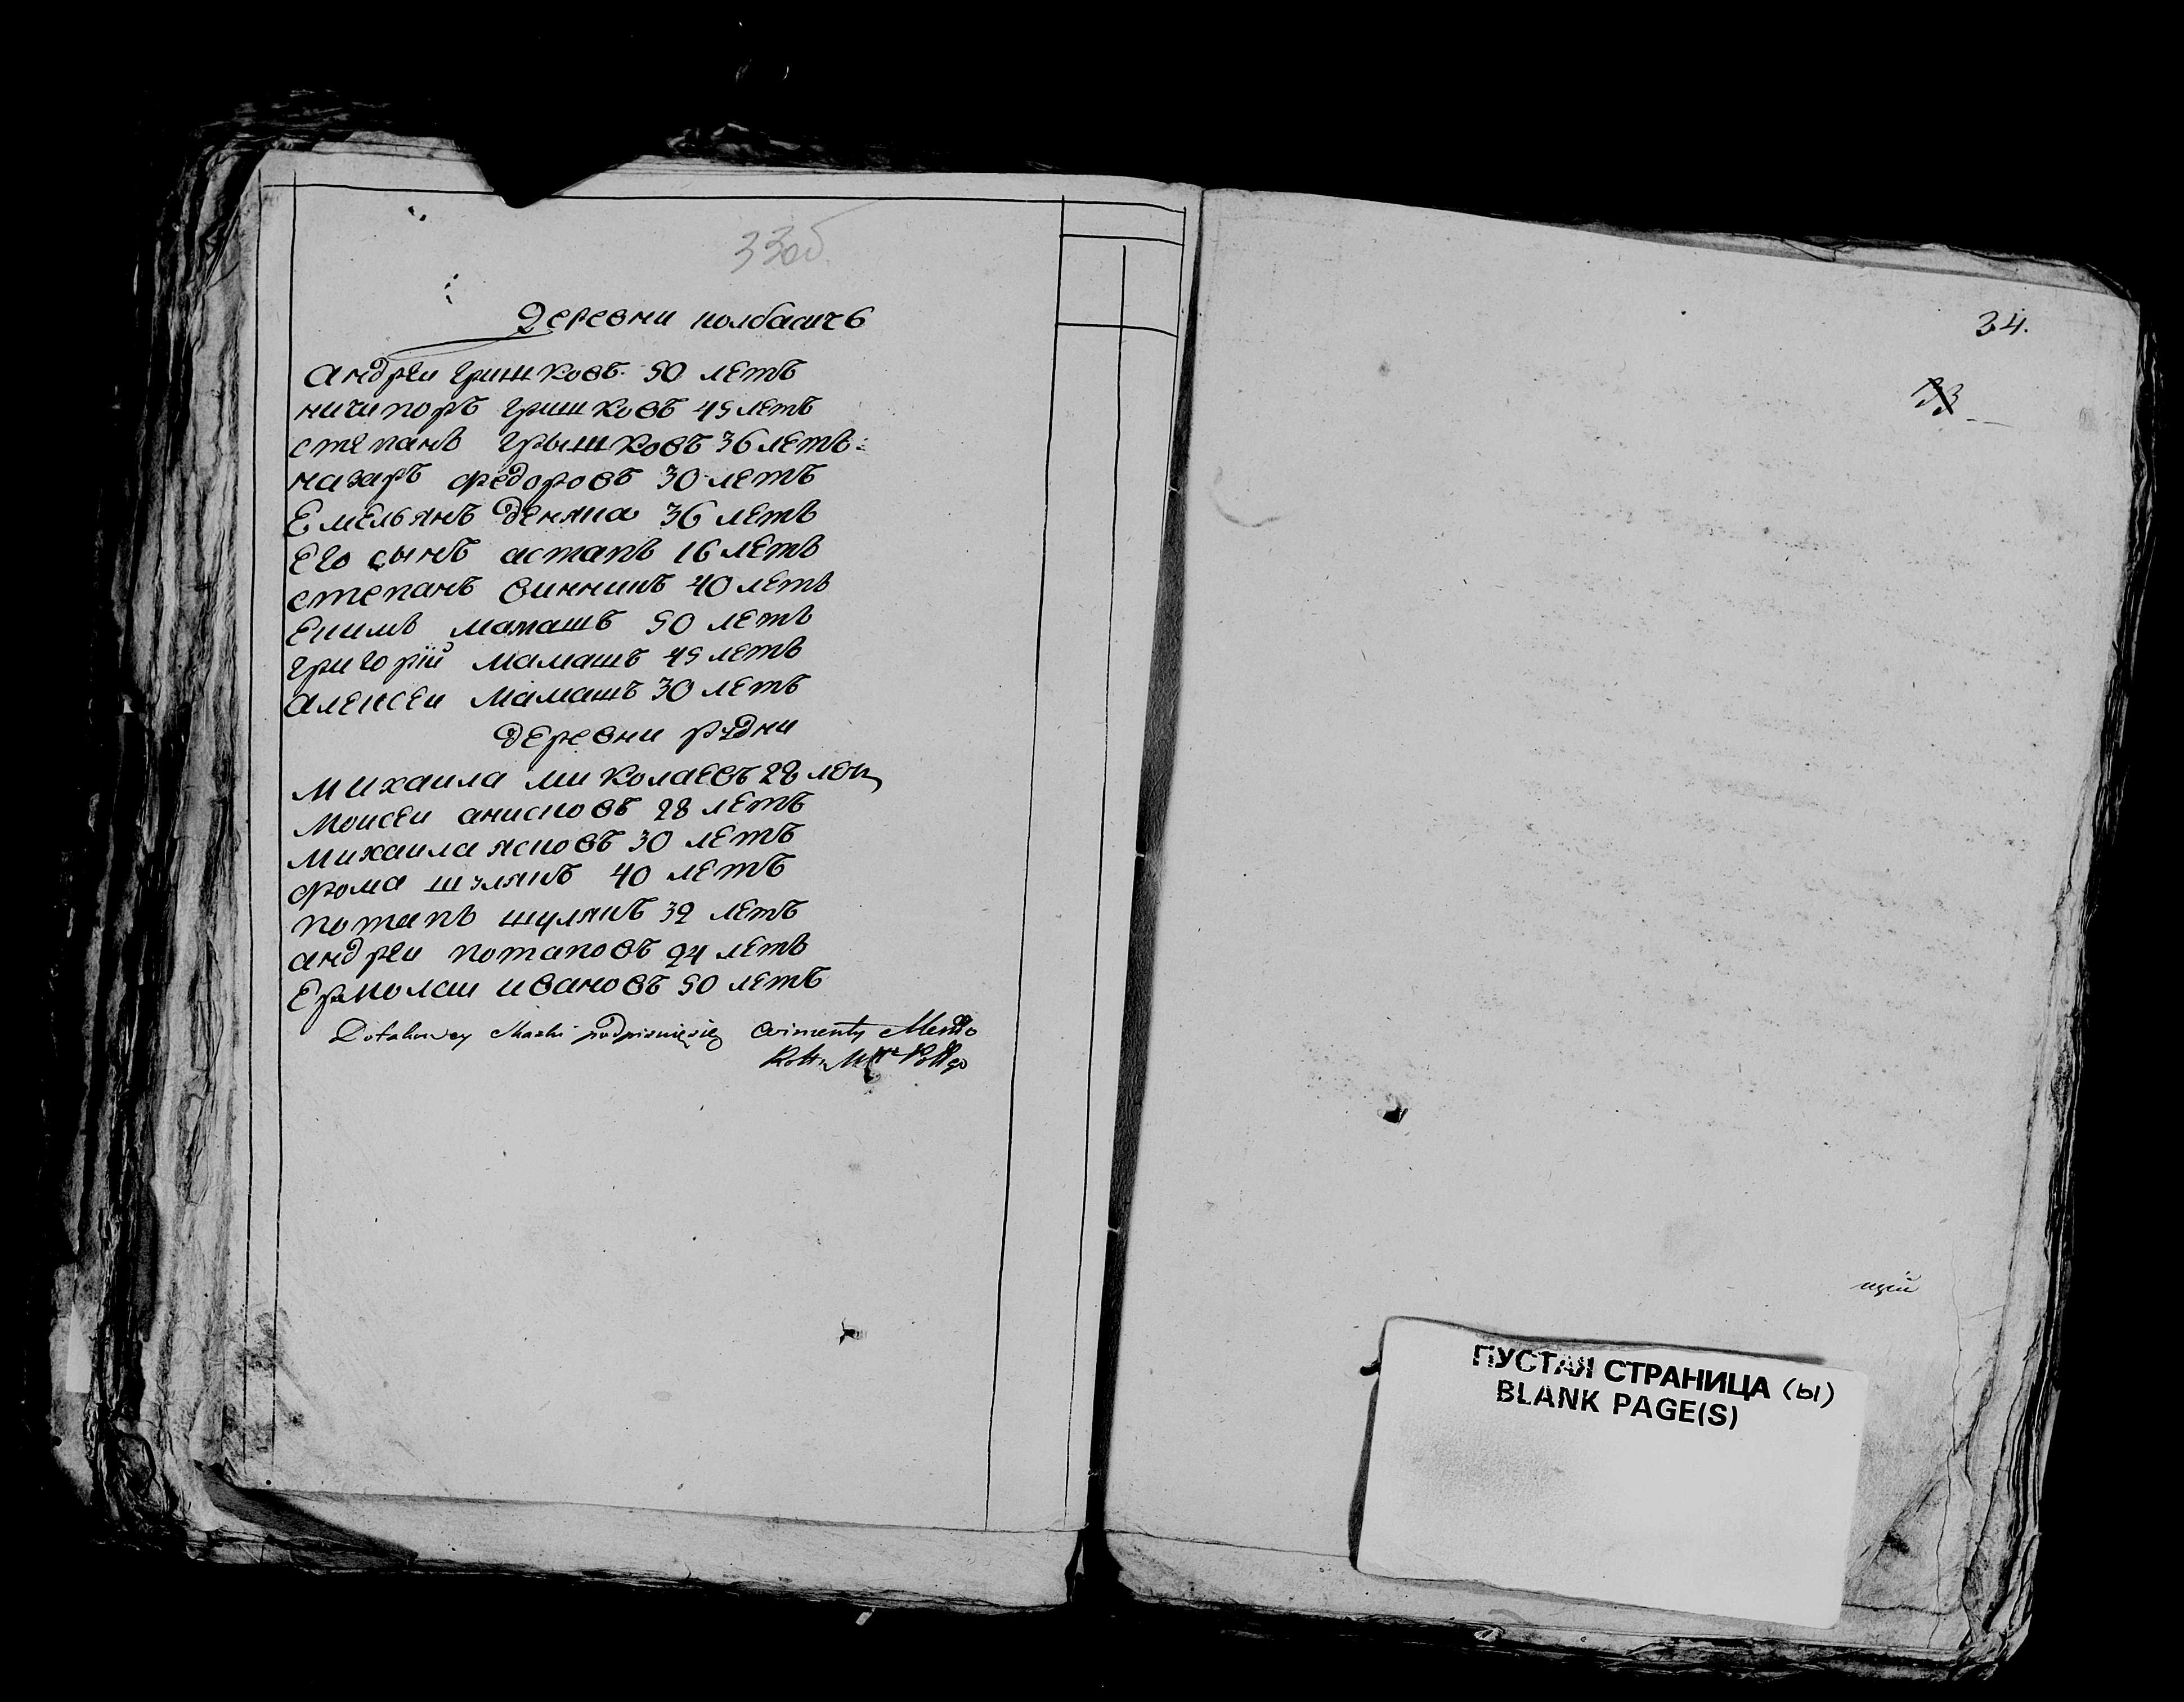 33об
Деревни колбасичъ
андреи гришковъ 50 летъ
ничипоръ гришковъ 45 летъ
степанъ грышковъ 36 летъ
назаръ федоровъ 30 летъ
Емельянъ деняка 36 летъ
Его сынъ астапъ 16 летъ
степанъ винникъ 40 летъ
Екимъ мамашъ 50 летъ
григорїй мамашъ 45 летъ
алексеи мамашъ 30 летъ
деревни рудни
михаила миколаевъ 28 летъ
моисеи анисковъ 28 летъ
михаила ясковъ 30 летъ
фома шулякъ 40 летъ
потапъ шулякъ 32 летъ
андреи потаповъ 24 летъ
Ермолаи ивановъ 50 летъ
podpisuięsię
34.
33
щїй
ПУСТАЯ СТРАНИЦА (Ы)
BLANK PAGE(S)